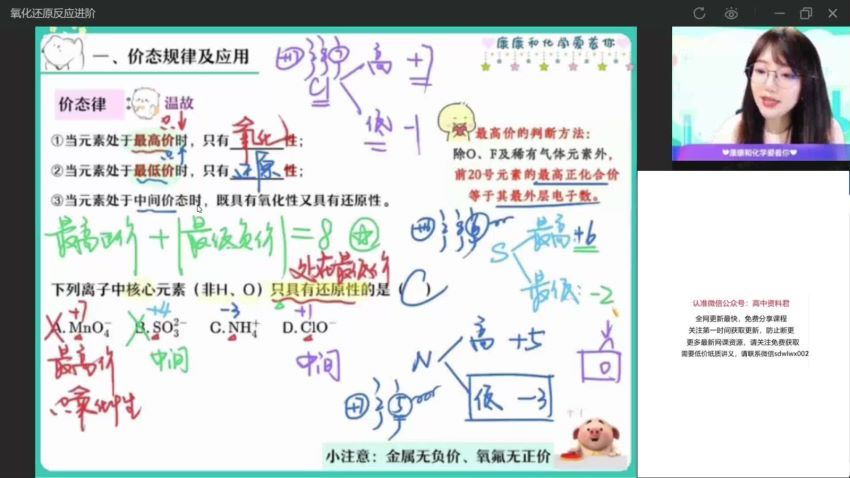 氧化还原反应进阶
一、价态规律及应用
康康和化学爱着你
+17 7 Cl 高 +7
低 -1
价态律： 温故
①当元素处于最高价时，只有氧化性；
②当元素处于最低价时，只有还原性；
③当元素处于中间价态时，既具有氧化性又具有还原性。
最高价的判断方法：
除O、F及稀有气体元素外，
前20号元素的最高正化合价
等于其最外层电子数。
最高正价+|最低负价|=8
+16 6 S 最高:+6
最低:-2
处在最低价
下列离子中核心元素（非H、O）只具有还原性的是（ C ）
+7 +4 -3 +1
A.MnO₄⁻ B.SO₃²⁻ C.NH₄⁺ D.ClO⁻
最高价 中间 中间
只氧化性
N 高 +5
低 -3
+7 5
0
小注意：金属无负价、氧氟无正价
康康和化学爱着你
认准微信公众号：高中资料君
全网更新最快，免费分享课程
关注第一时间获取更新，防止断更
更多最新网课资源，请关注免费获取
需要低价纸质讲义，请联系微信sdwlwx002